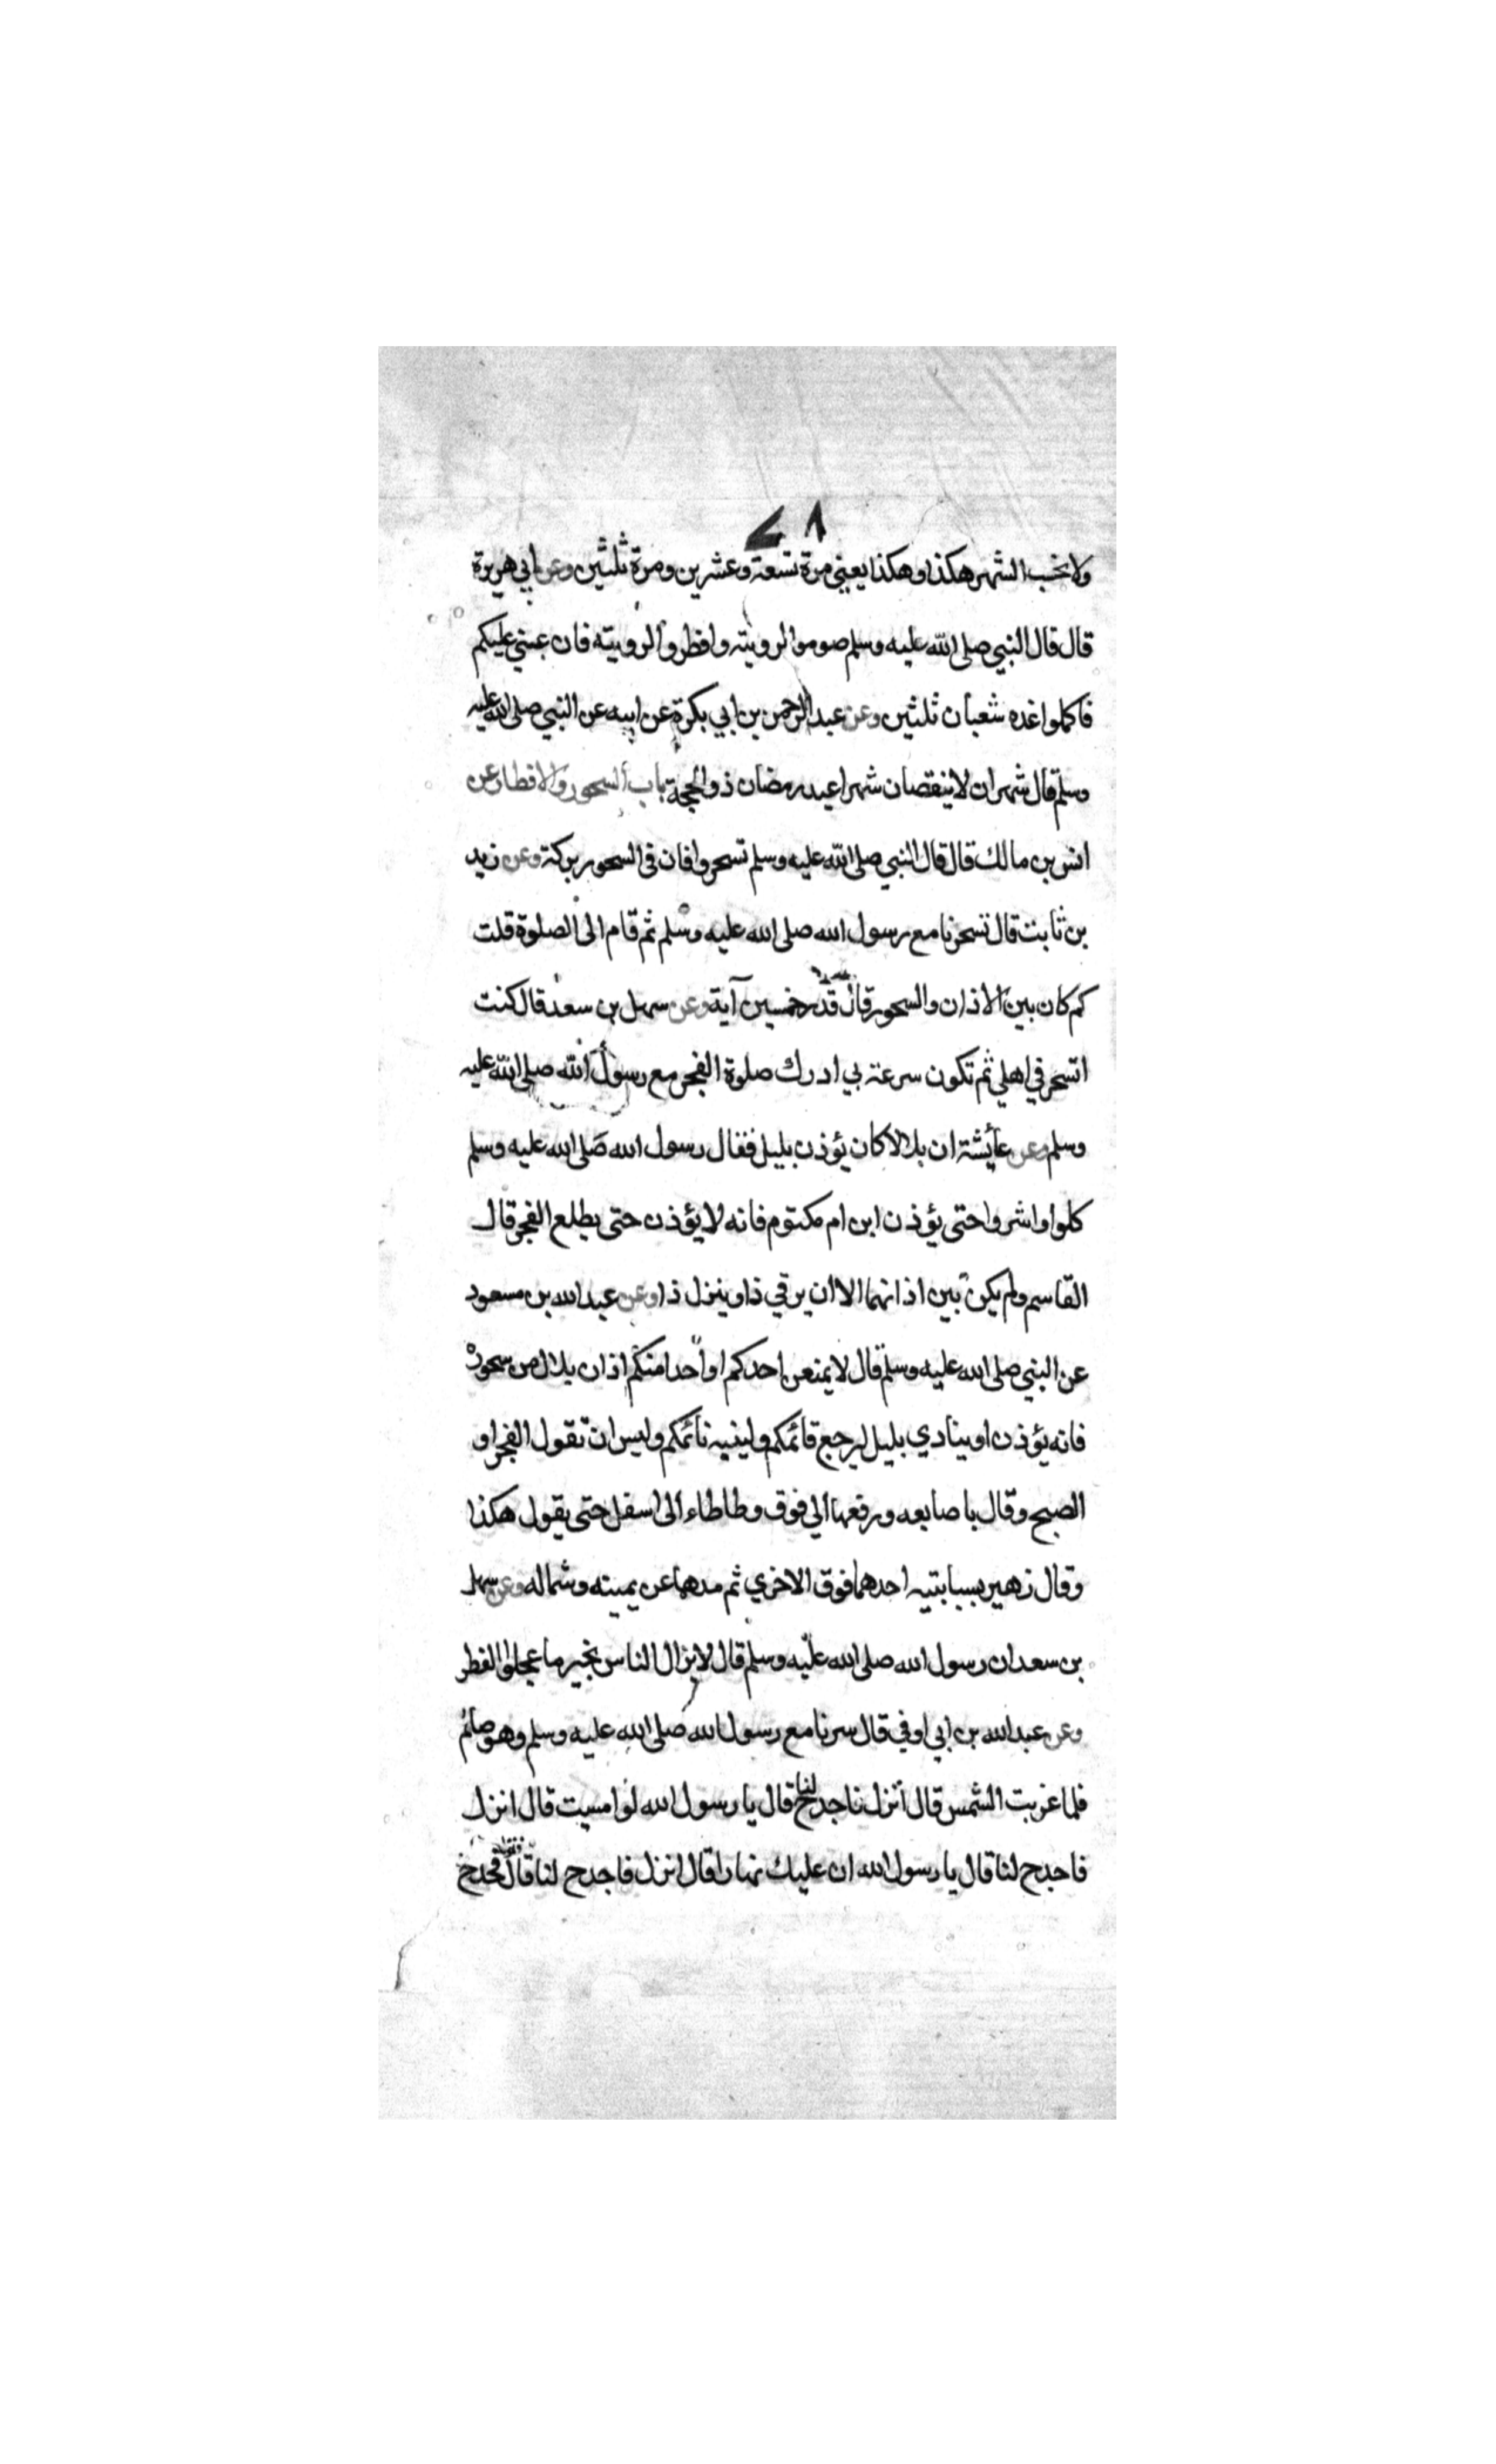 ولا نحسب الشهر هكذا وهكذا يعني مرة تسعة وعشرين ومرة ثلثين وعن ابي هريرة
قال قال النبي صلى الله عليه وسلم صوموا لرويته وافطروا لرويته فان غبي عليكم
فاكملوا عده شعبان ثلثين وعن عبد الرحمن بن ابي بكرة عن ابيه عن النبي صلى الله عليه
وسلم قال شهران لا ينقصان شهرا عيد رمضان ذو الحجة باب السحور والافطار عن
انس بن مالك قال قال النبي صلى الله عليه وسلم تسحروا فان في السحور بركة وعن زيد
بن ثابت قال تسحرنا مع رسول الله صلى الله عليه وسلم ثم قام الى الصلوة قلت
كم كان بين الاذان والسحور قال قدر خمسين آية وعن سهل بن سعد قال كنت
اتسحر في اهلي ثم تكون سرعة بي ادرك صلوة الفجر مع رسول الله صلى الله عليه
وسلم وعن عائشة ان بلالا كان يؤذن بليل فقال رسول الله صلى الله عليه وسلم
كلوا واشربوا حتى يؤذن ابن ام مكتوم فانه لا يؤذن حتى يطلع الفجر قال
القاسم ولم يكن بين اذانهما الا ان يرقي ذا وينزل ذا وعن عبد الله بن مسعود
عن النبي صلى الله عليه وسلم قال لا يمنعن احدكم او احدا منكم اذان بلال من سحوره
فانه يؤذن او ينادي بليل ليرجع قائمكم ولينبه نائمكم وليس ان تقول الفجر او
الصبح وقال باصابعه ورفعها الي فوق وطاطاء الى اسفل حتى يقول هكذا
وقال زهير بسبابتيه احدهما فوق الاخري ثم مدهما عن يمينه وشماله وعن سهل
بن سعد ان رسول الله صلى الله عليه وسلم قال لا يزال الناس بخير ما عجلوا الفطر
وعن عبد الله بن ابي اوفي قال سرنا مع رسول الله صلى الله عليه وسلم وهو صائم
فلما غربت الشمس قال انزل فاجدح لنا قال يا رسول الله لو امسيت قال انزل
فاجدح لنا قال يا رسول الله ان عليك نهارا قال انزل فاجدح لنا قال فنزل فجدح